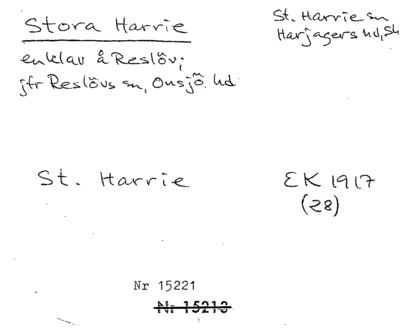 Stora Harrie
St. Harrie sn
Harjagers hd, Sk
enklav å Reslöv;
jfr Reslövs sn, Onsjö hd
St. Harrie
EK 1917
(28)
Nr 15221
Nr 15210